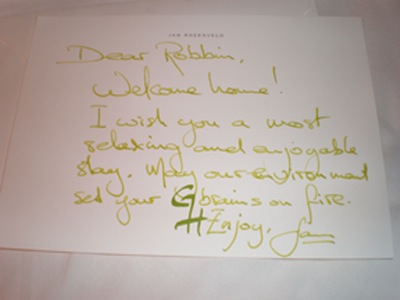 JAN ROERSVELD
Dear Robbin,
Welcome home!
I wish you a most
relaxing and enjoyable
stay. May our environment
set your brains on fire.
Enjoy, Jan